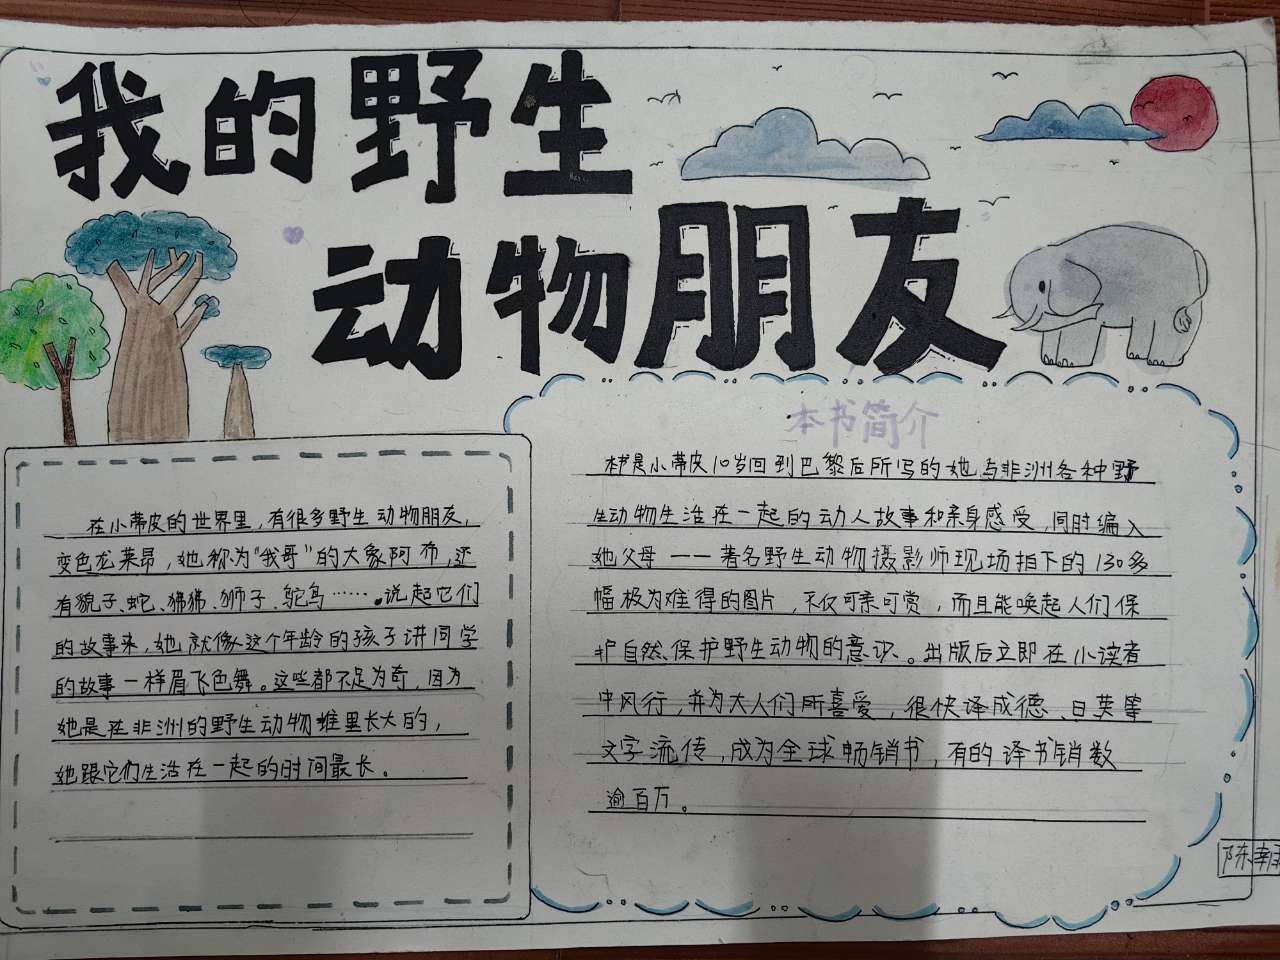 我的野生
动物朋友
在小蒂皮的世界里,有很多野生动物朋友,
变色龙莱昂,她称为“我哥”的大象阿布,还
有貌子、蛇、狒狒、狮子、鸵鸟……。说起它们
的故事来,她就像这个年龄的孩子讲同学
的故事一样眉飞色舞。这些都不足为奇,因为
她是在非洲的野生动物堆里长大的,
她跟它们生活在一起的时间最长。
本书简介
本书是小蒂皮10岁回到巴黎后所写的她与非洲各种野
生动物生活在一起的动人故事和亲身感受,同时编入
她父母——著名野生动物摄影师现场拍下的130多
幅极为难得的图片,不仅可亲可赏,而且能唤起人们保
护自然、保护野生动物的意识。出版后立即在小读者
中风行,并为大人们所喜爱,很快译成德、日英等
文字流传,成为全球畅销书,有的译书销数
逾百万。
陈